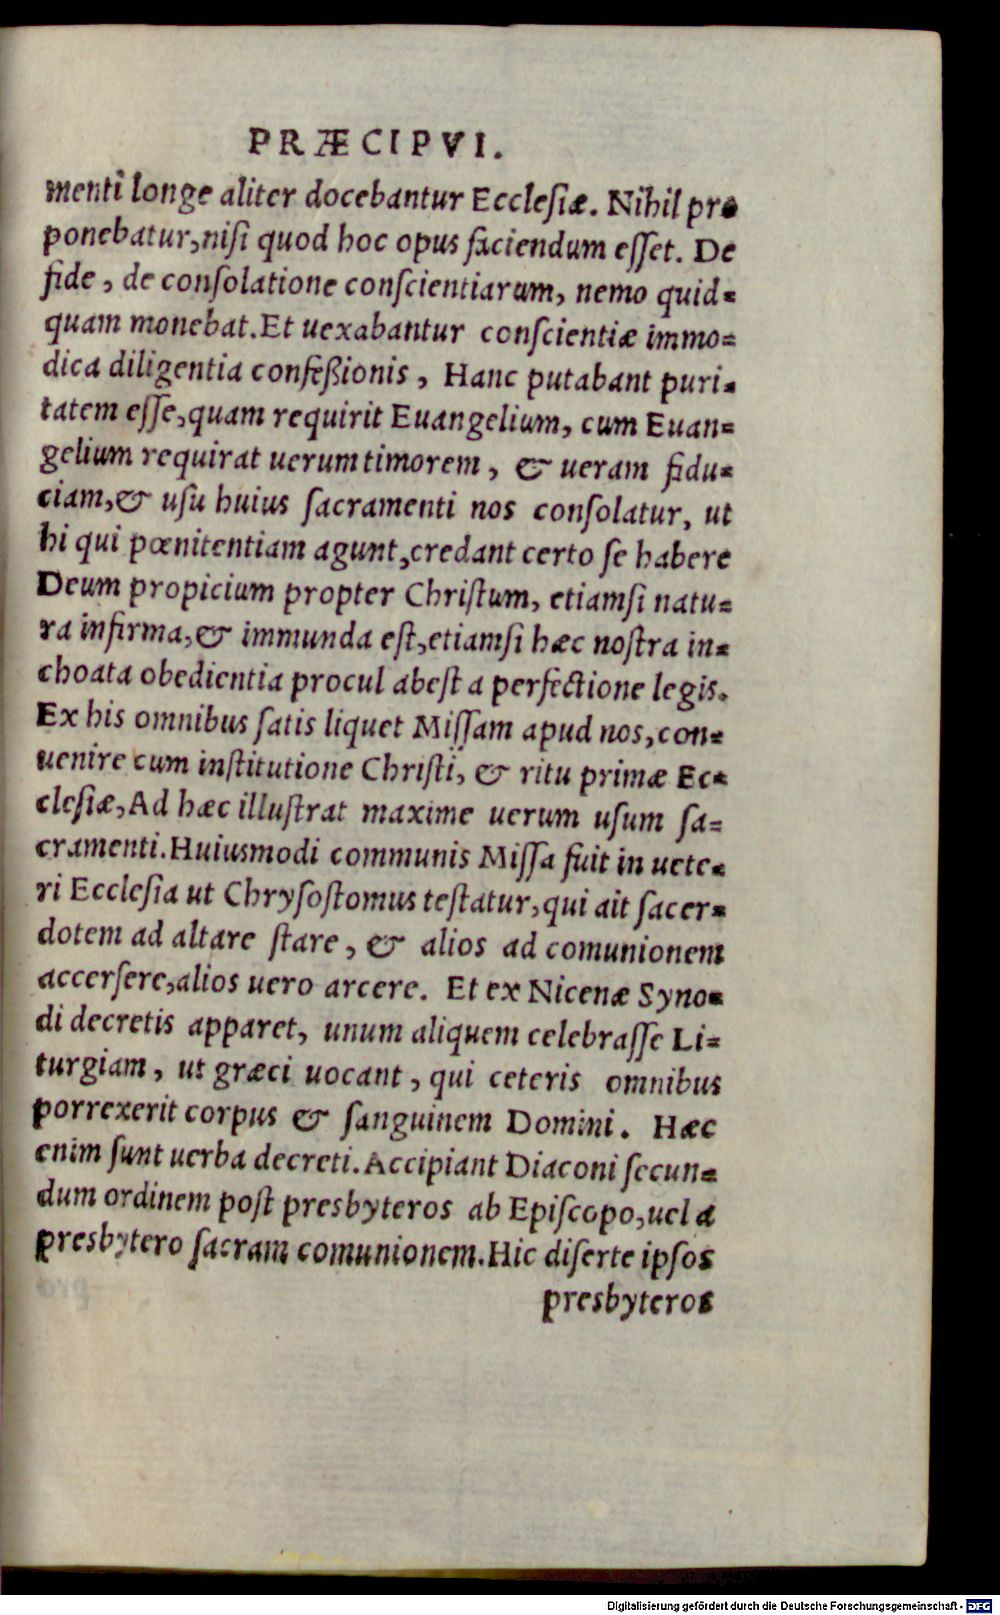 PRÆCIPVI.
menti longe aliter docebantur Ecclesiæ. Nihil pro
ponebatur,nisi quod hoc opus faciendum esset. De
fide , de consolatione conscientiarum, nemo quid=
quam monebat.Et uexabantur conscientiæ immo=
dica diligentia confeßionis , Hanc putabant puri=
tatem esse,quam requirit Euangelium, cum Euan=
gelium requirat uerum timorem , & ueram fidu=
ciam,& usu huius sacramenti nos consolatur, ut
hi qui pœnitentiam agunt,credant certo se habere
Deum propicium propter Christum, etiamsi natu=
ra infirma,& immunda est,etiamsi hæc nostra in=
choata obedientia procul abest a perfectione legis.
Ex his omnibus satis liquet Missam apud nos,con=
uenire cum institutione Christi, & ritu primæ Ec=
clesiæ,Ad hæc illustrat maxime uerum usum sa=
cramenti.Huiusmodi communis Missa fuit in uete=
ri Ecclesia ut Chrysostomus testatur,qui ait sacer=
dotem ad altare stare , & alios ad comunionem
accersere,alios uero arcere. Et ex Nicenæ Syno=
di decretis apparet, unum aliquem celebrasse Li=
turgiam , ut græci uocant , qui ceteris omnibus
porrexerit corpus & sanguinem Domini. Hæc
enim sunt uerba decreti.Accipiant Diaconi secun=
dum ordinem post presbyteros ab Episcopo,uel a
presbytero sacram comunionem.Hic diserte ipsos
presbyteros
Digitalisierung gefördert durch die Deutsche Forschungsgemeinschaft - DFG